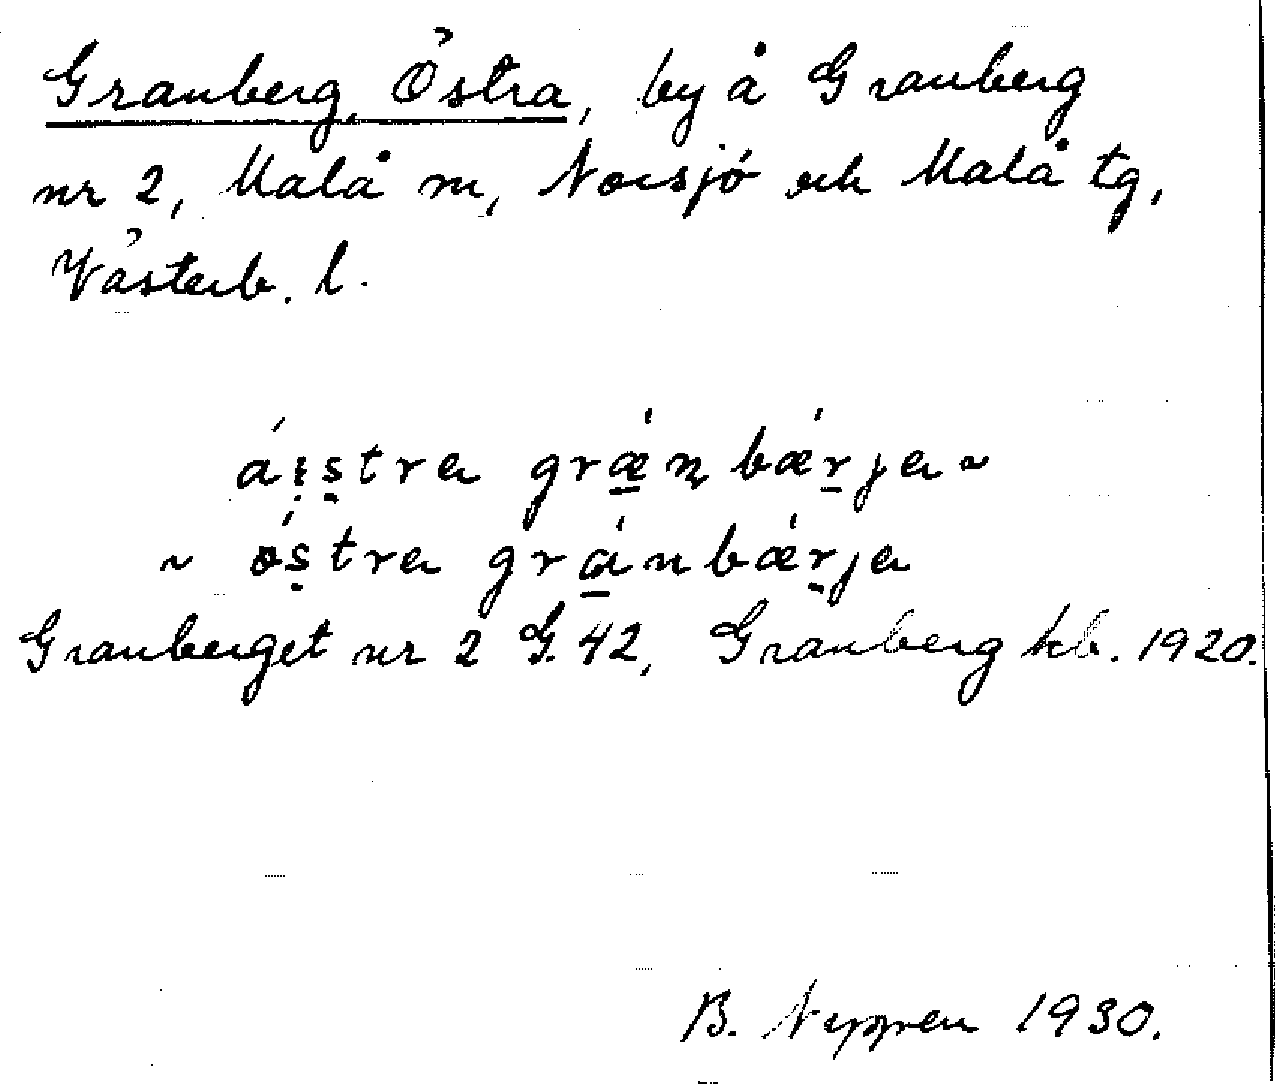 Granberg, Östra, by å Granberg
nr 2, Malå sn, Norsjö och Malå tg,
Västerb. l.
áı̣ṣtra grǽ̱n bǽṟja ~
~ ǿṣtra grá̱nbǽṟja
Granberget nr 2 G. 42, Granberg kb. 1920.
B. 1930.